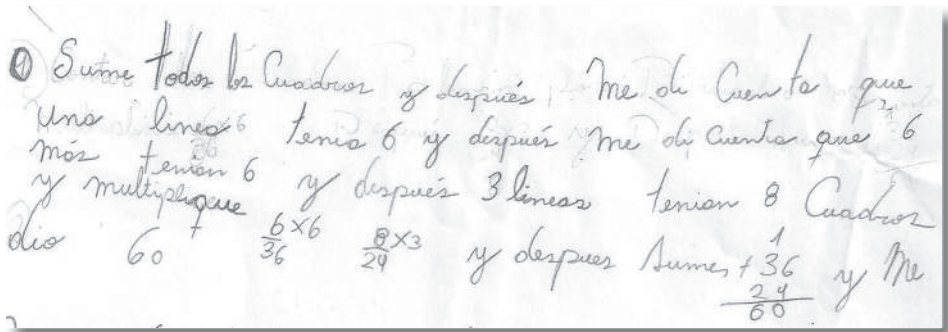 ① Sume todos los Cuadros y después, Me di Cuenta que
una linea tenia 6 y después me di cuenta que 6
más tenian 6 y después 3 lineas tenian 8 Cuadros
y multiplique 6x6 36 8x3 24 y despues sume, + 36 24 60 y Me
dio 60